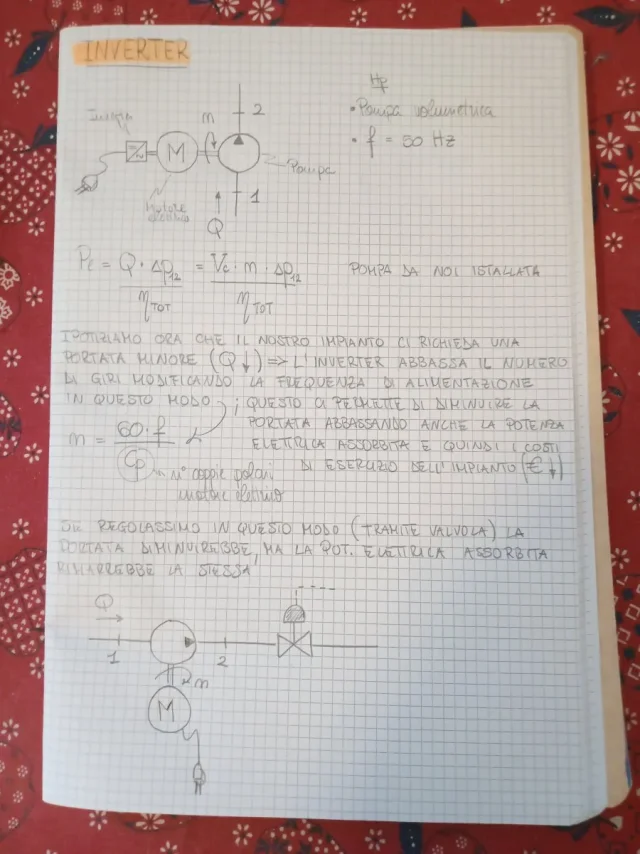 INVERTER
Hp
• Pompa volumetrica
• f = 50 Hz
Inverter
n
2
M
Pompa
motore
elettrico
1
Q
Pe = Q · Δp12 / ηTOT = Vc · n · Δp12 / ηTOT
POMPA DA NOI ISTALLATA
IPOTIZIAMO ORA CHE IL NOSTRO IMPIANTO CI RICHIEDA UNA
PORTATA MINORE (Q ↓) => L'INVERTER ABBASSA IL NUMERO
DI GIRI MODIFICANDO LA FREQUENZA DI ALIMENTAZIONE
IN QUESTO MODO ; QUESTO CI PERMETTE DI DIMINUIRE LA
PORTATA ABBASSANDO ANCHE LA POTENZA
ELETTRICA ASSORBITA E QUINDI I COSTI
DI ESERCIZIO DELL'IMPIANTO (€ ↓)
n = 60 · f / Cp
n° coppie polari
motore elettrico
SE REGOLASSIMO IN QUESTO MODO (TRAMITE VALVOLA) LA
PORTATA DIMINUIREBBE, MA LA POT. ELETTRICA ASSORBITA
RIMARREBBE LA STESSA
Q
1
2
n
M